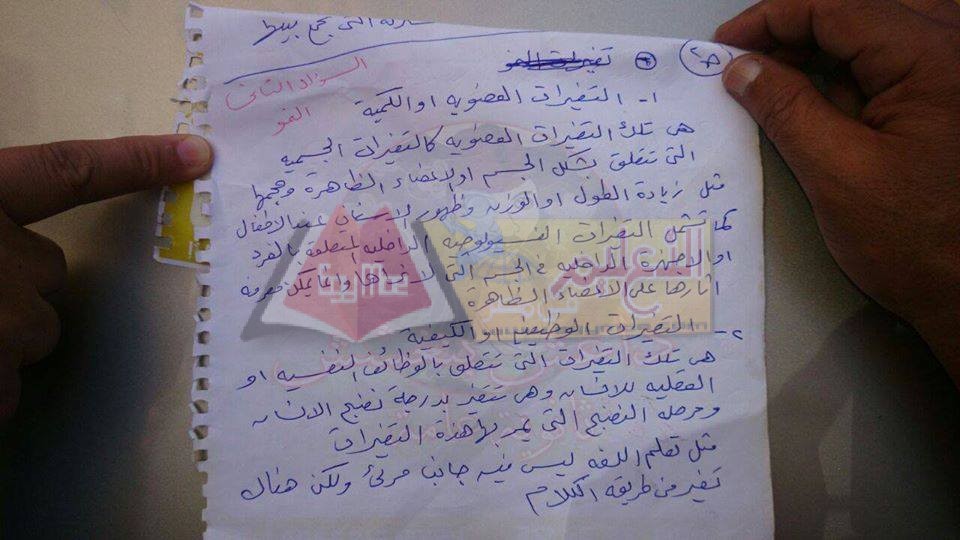 التى تجمع بينها
ص٢
تغيرات النمو
السؤال الثانى
النمو
١- التغيرات العضويه او الكمية
هى تلك التغيرات العضويه كالتغيرات الجسميه
التى تتعلق بشكل الجسم او الاعضاء الظاهرة وحجمها
مثل زيادة الطول او الوزن وظهور الاسنان عند الاطفال
كما تشمل التغيرات الفسيولوجيه الداخليه المتعلقة بالغدد
او الاجهزة الداخليه فى الجسم التى لا نراها وانما يمكن معرفه
اثارها على الاعضاء الظاهرة
٢- التغيرات الوظيفيه او الكيفية
هى تلك التغيرات التى تتعلق بالوظائف النفسيه او
العقليه للانسان وهى تتغير بدرجة نضج الانسان
ومرحله النضج التى يمر بها هذة التغيرات
مثل تعلم اللغه ليس فيه جانب مرئ ولكن هناك
تغير فى طريقه الكلام